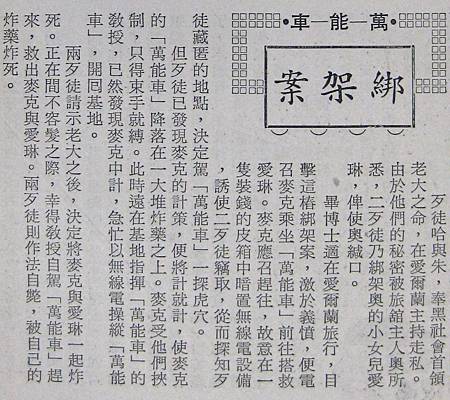 •萬—能—車•
綁架案
歹徒哈與朱，奉黑社會首領
老大之命，在愛爾蘭主持走私。
由於他們的秘密被旅館主人奧所
悉，二歹徒乃綁架奧的小女兒愛
琳，俾使奧緘口。
畢博士適在愛爾蘭旅行，目
擊這樁綁架案，激於義憤，便電
召麥克乘坐「萬能車」前往搭救
愛琳。麥克應召趕往，故意在一
隻裝錢的皮箱中暗置無線電設備
，誘使二歹徒竊取，從而探知歹
徒藏匿的地點，決定駕「萬能車」一探虎穴。
但歹徒已發現麥克的計策，便將計就計，使麥克
的「萬能車」降落在一大堆炸藥之上。麥克受他們挾
制，只得束手就縛。此時遠在基地指揮「萬能車」的
教授，已然發現麥克中計，急忙以無線電操縱「萬能
車」，開回基地。
兩歹徒請示老大之後，決定將麥克與愛琳一起炸
死。正在間不容髮之際，幸得教授自駕「萬能車」趕
來，救出麥克與愛琳。兩歹徒則作法自斃，被自己的
炸藥炸死。